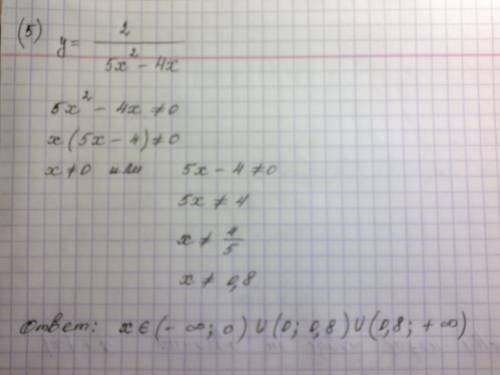 (5) y = 2 / (5x² - 4x)
5x² - 4x ≠ 0
x(5x - 4) ≠ 0
x ≠ 0 или 5x - 4 ≠ 0
5x ≠ 4
x ≠ 4/5
x ≠ 0,8
Ответ: x ∈ (- ∞; 0) ∪ (0; 0,8) ∪ (0,8; + ∞)